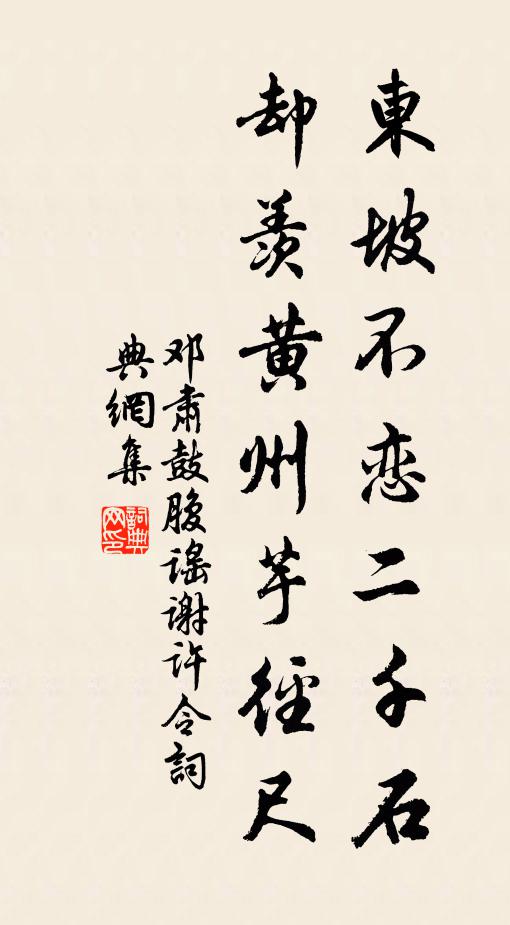 東坡不恋二千石
却羨黄州芋徑尺
邓肅鼓腹謠谢许令詞
典網集
詞典
网印